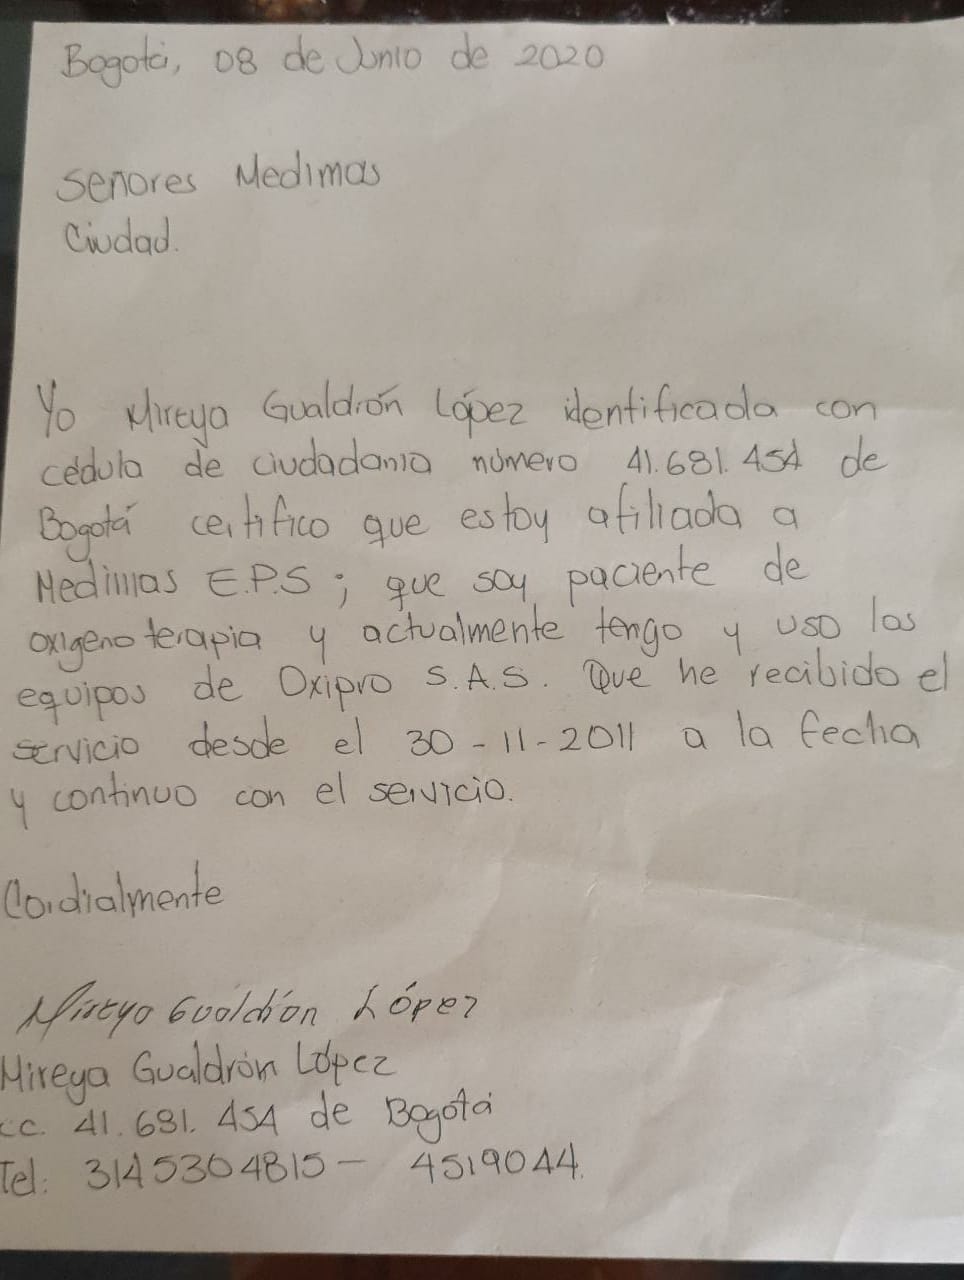 Bogotá, 08 de Junio de 2020
Senores Medimas
Ciudad.
Yo Mireya Gualdrón López identificada con
cédula de ciudadania número 41.681.454 de
Bogotá certifico que estoy afiliada a
Medimas E.P.S; que soy paciente de
oxigeno terapia y actualmente tengo y uso los
equipos de Oxipro S.A.S. Que he recibido el
servicio desde el 30-11-2011 a la fecha
y continuo con el servicio.
Cordialmente
Mireya Gualdrón López
Mireya Gualdrón López
cc. 41.681.454 de Bogotá
Tel: 3145304815- 4519044.